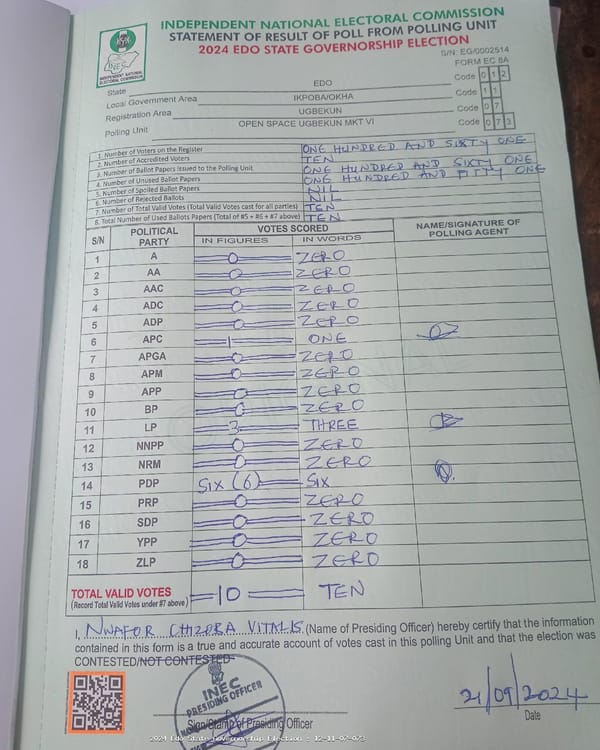 INDEPENDENT NATIONAL ELECTORAL COMMISSION
STATEMENT OF RESULT OF POLL FROM POLLING UNIT
2024 EDO STATE GOVERNORSHIP ELECTION
S/N: EG/0002514
FORM EC 8A
INEC
INDEPENDENT NATIONAL ELECTORAL COMMISSION
State EDO Code 0 1 2
Local Government Area IKPOBA/OKHA Code 1 1
Registration Area UGBEKUN Code 0 7
Polling Unit OPEN SPACE UGBEKUN MKT VI Code 0 7 3
1. Number of Voters on the Register ONE HUNDRED AND SIXTY ONE
2. Number of Accredited Voters TEN
3. Number of Ballot Papers Issued to the Polling Unit ONE HUNDRED AND SIXTY ONE
4. Number of Unused Ballot Papers ONE HUNDRED AND FITTY ONE
5. Number of Spoiled Ballot Papers NIL
6. Number of Rejected Ballots NIL
7. Number of Total Valid Votes (Total Valid Votes cast for all parties) TEN
8. Total Number of Used Ballots Papers (Total of #5 + #6 + #7 above) TEN
S/N POLITICAL PARTY VOTES SCORED NAME/SIGNATURE OF POLLING AGENT
IN FIGURES IN WORDS
1 A 0 ZERO
2 AA 0 ZERO
3 AAC 0 ZERO
4 ADC 0 ZERO
5 ADP 0 ZERO
6 APC 1 ONE
7 APGA 0 ZERO
8 APM 0 ZERO
9 APP 0 ZERO
10 BP 0 ZERO
11 LP 3 THREE
12 NNPP 0 ZERO
13 NRM 0 ZERO
14 PDP SIX (6) SIX
15 PRP 0 ZERO
16 SDP 0 ZERO
17 YPP 0 ZERO
18 ZLP 0 ZERO
TOTAL VALID VOTES 10 TEN
(Record Total Valid Votes under #7 above)
I, NWAFOR CHIZOBA VITALIS (Name of Presiding Officer) hereby certify that the information
contained in this form is a true and accurate account of votes cast in this polling Unit and that the election was
CONTESTED/NOT CONTESTED
INEC
PRESIDING OFFICER
21/09/2024
Sign/Stamp of Presiding Officer
Date
2024 Edo State Governorship Election : 12-11-07-073